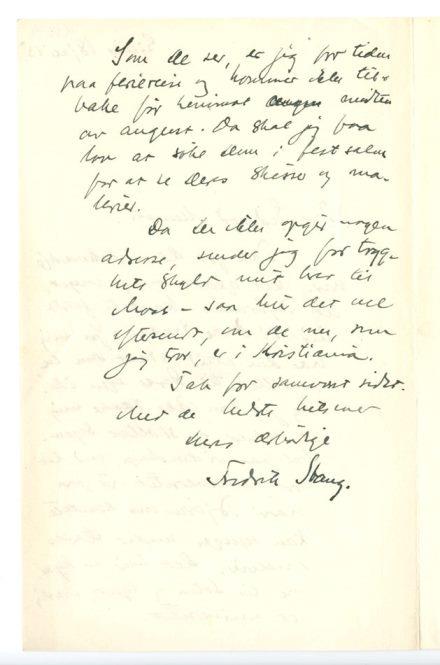 Som De ser, er jeg for tiden
paa feriereise og kommer ikke til-
bake før henimot midten
av august. Da skal jeg faa
lov at søke Dem i festsalen
for at se Deres skisser og ma-
lerier.
Da De ikke opgir nogen
adresse, sender jeg for tryg-
hets skyld mit brev til
Moss – saa blir det vel
eftersendt, om De nu, som
jeg tror, er i Kristiania.
Tak for samvært sidst.
Med de bedste hilsener
Deres ærbødige
Fredrik Stang.